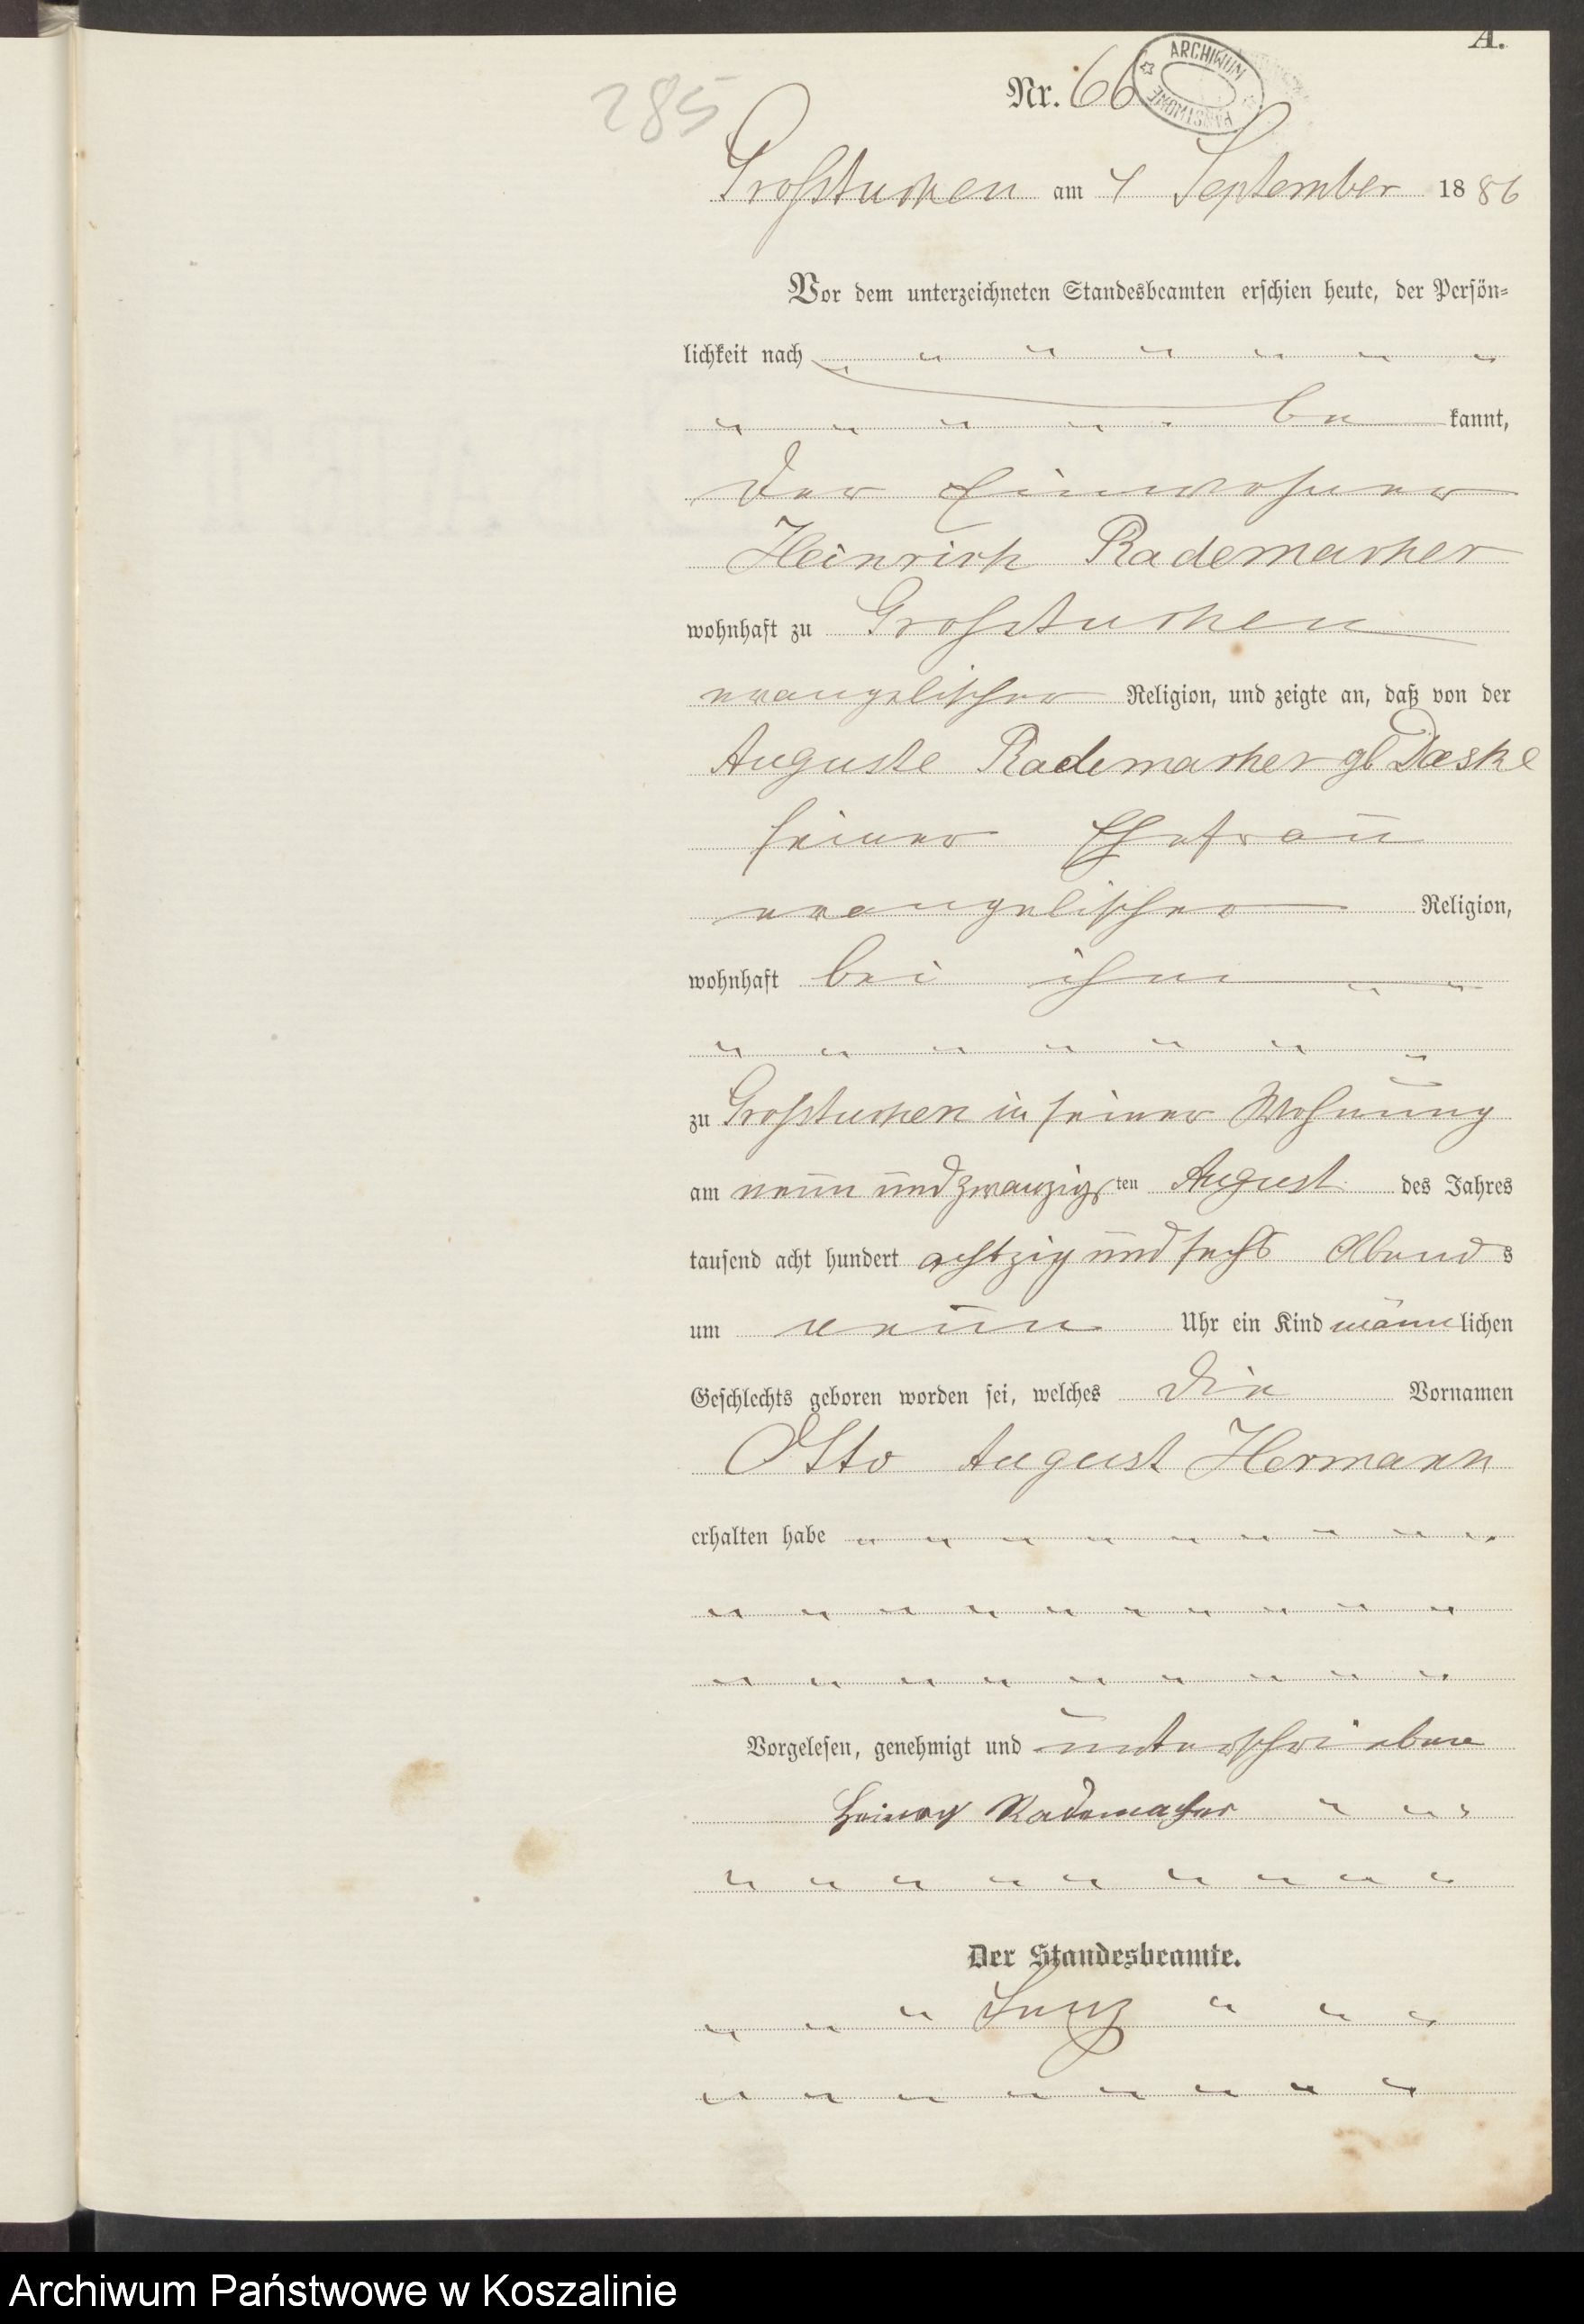 A.
285
Nr. 66
ARCHIWUM PAŃSTWOWE
Großtuchen am 4 September 1886
Vor dem unterzeichneten Standesbeamten erschien heute, der Persön-
lichkeit nach
be kannt,
der Einwohner
Heinrich Rademacher
wohnhaft zu Großtuchen
evangelischer Religion, und zeigte an, daß von der
Auguste Rademacher gb Daske
seiner Ehefrau
evangelischer Religion,
wohnhaft bei ihm
zu Großtuchen in seiner Wohnung
am neun und zwanzigsten August des Jahres
tausend acht hundert achtzig und sechs Abends
um neun Uhr ein Kind männlichen
Geschlechts geboren worden sei, welches die Vornamen
Otto August Hermann
erhalten habe
Vorgelesen, genehmigt und unterschrieben
Heinrich Rademacher
Der Standesbeamte.
Archiwum Państwowe w Koszalinie